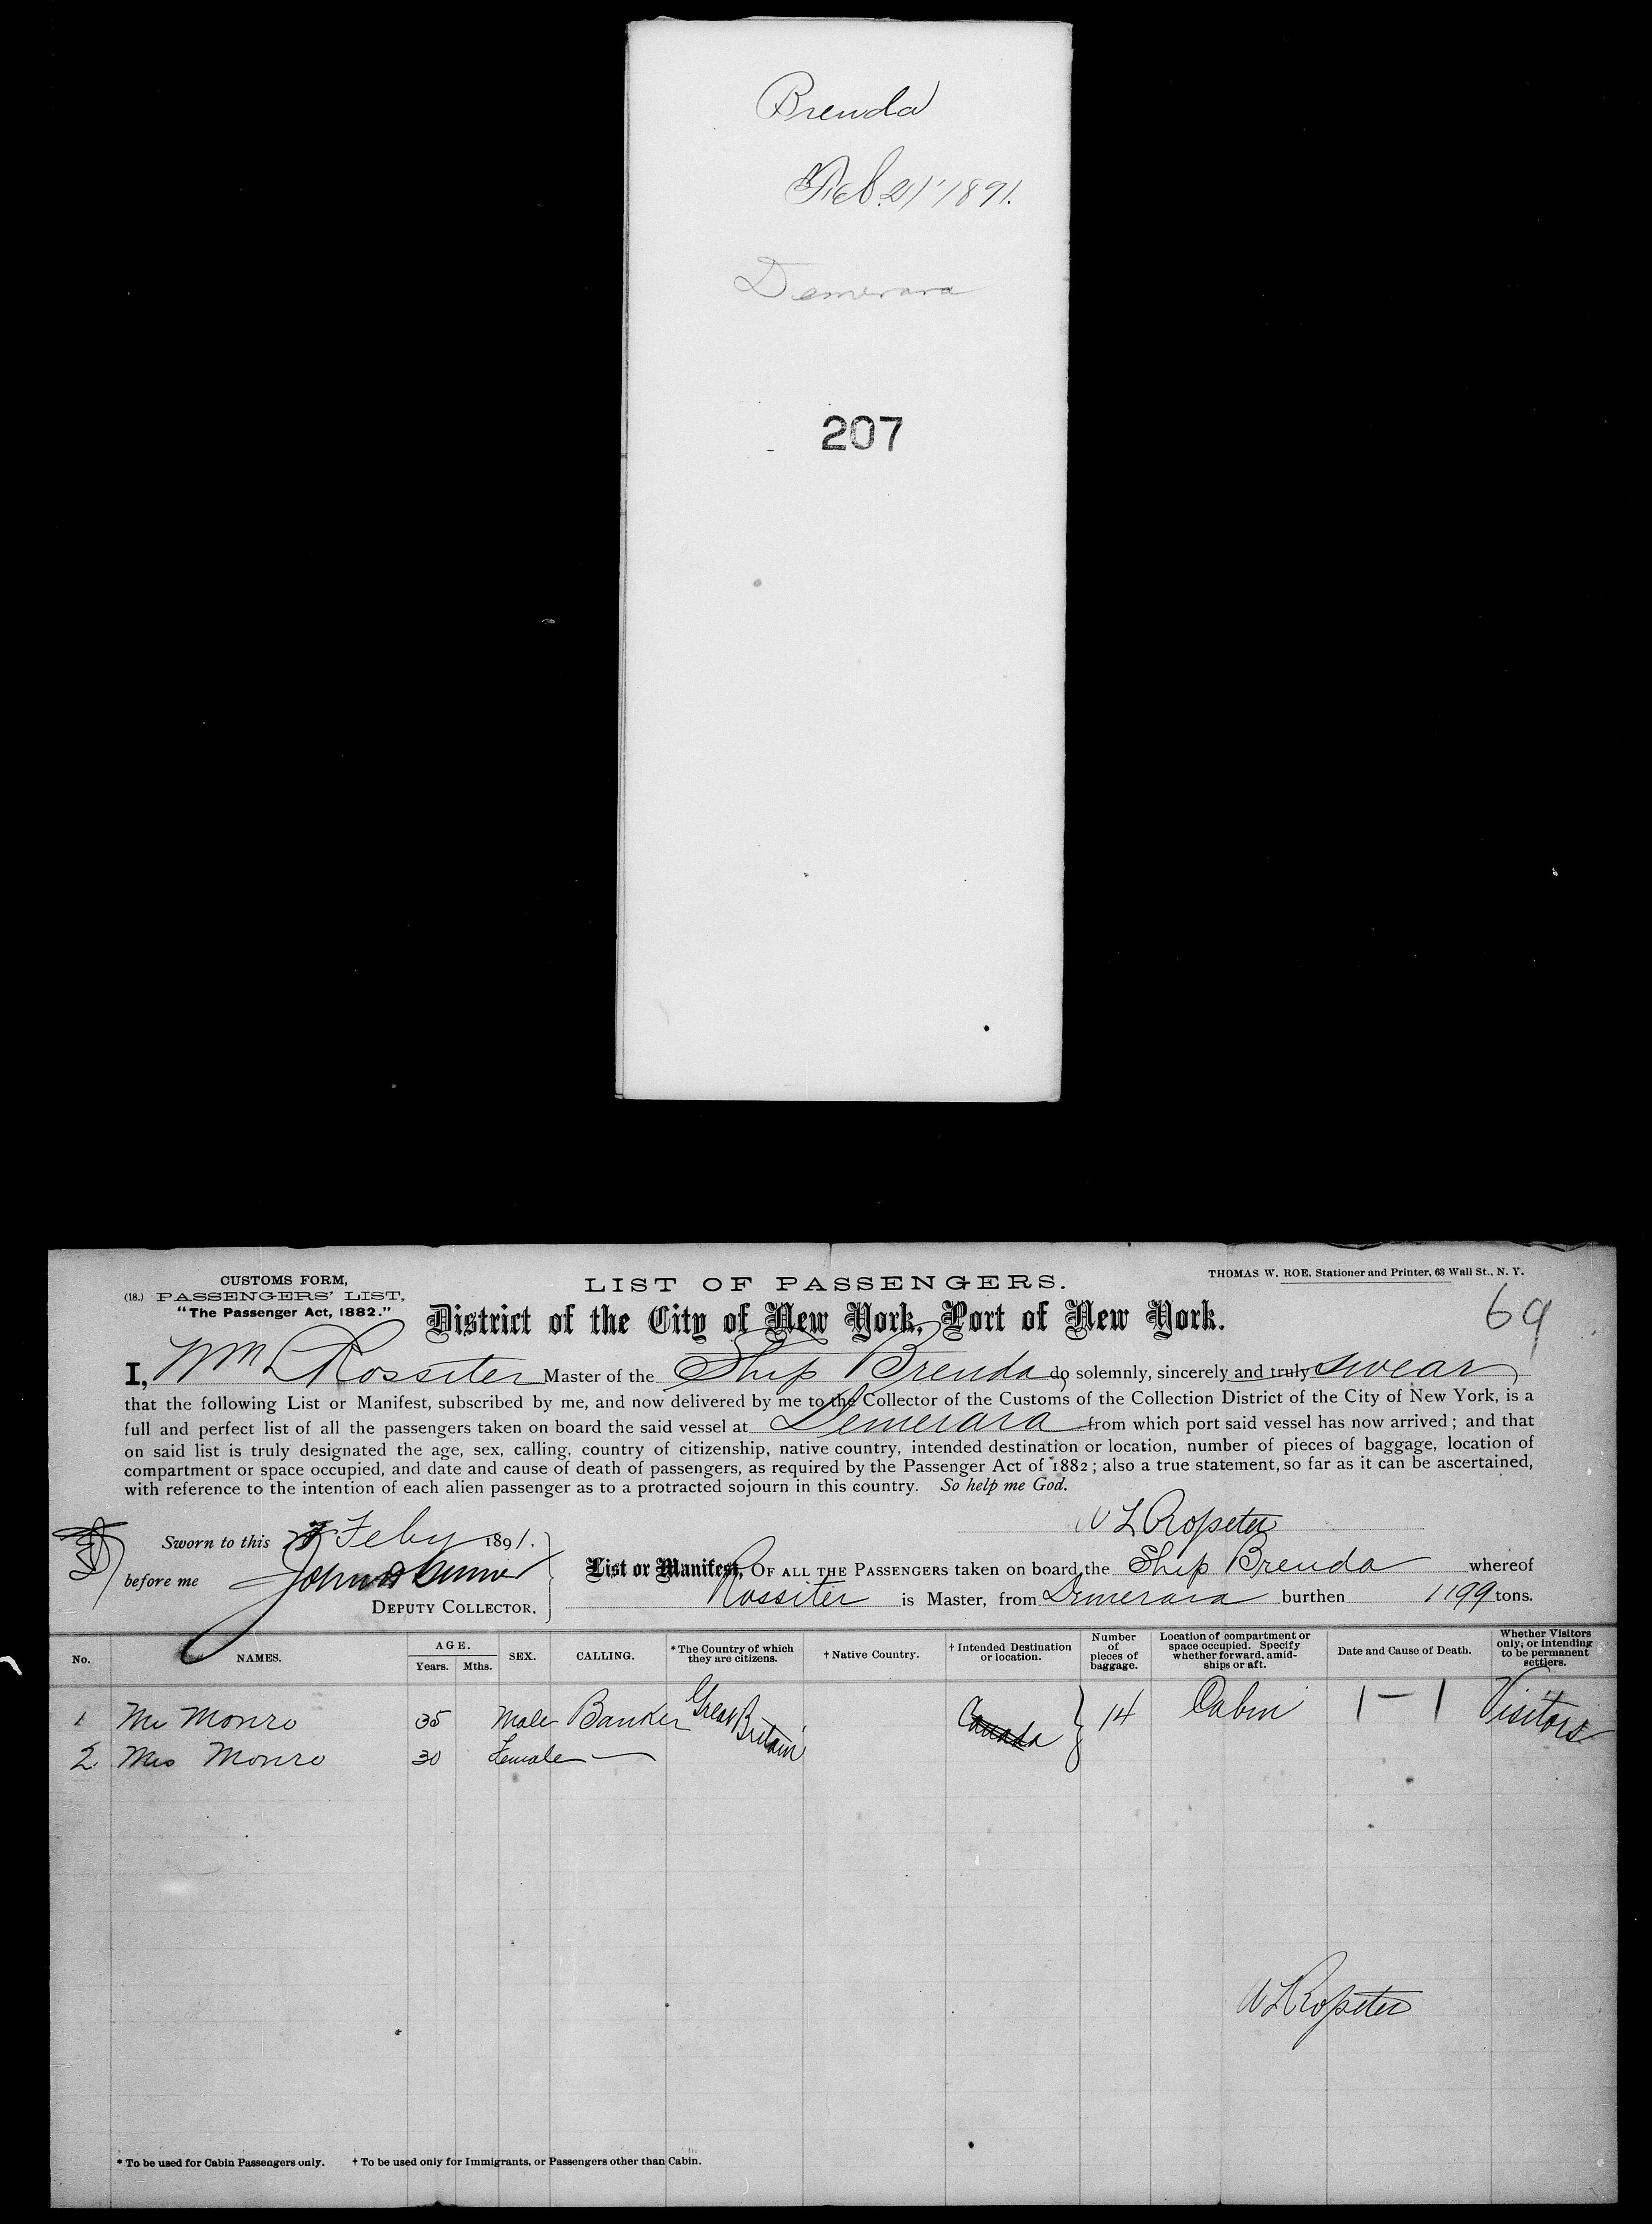 Brenda
Feb. 21 1891.
Demerara
207
CUSTOMS FORM,
(18.) PASSENGERS' LIST,
"The Passenger Act, 1882."
LIST OF PASSENGERS.
THOMAS W. ROE. Stationer and Printer, 63 Wall St., N. Y.
District of the City of New York, Port of New York.
69
I, Wm L Rossiter Master of the Ship Brenda do solemnly, sincerely and truly swear
that the following List or Manifest, subscribed by me, and now delivered by me to the Collector of the Customs of the Collection District of the City of New York, is a
full and perfect list of all the passengers taken on board the said vessel at Demerara from which port said vessel has now arrived; and that
on said list is truly designated the age, sex, calling, country of citizenship, native country, intended destination or location, number of pieces of baggage, location of
compartment or space occupied, and date and cause of death of passengers, as required by the Passenger Act of 1882; also a true statement, so far as it can be ascertained,
with reference to the intention of each alien passenger as to a protracted sojourn in this country. So help me God.
W L Rossiter
Sworn to this Feby 1891.
before me John
DEPUTY COLLECTOR.
List or Manifest, OF ALL THE PASSENGERS taken on board the Ship Brenda whereof
Rossiter is Master, from Demerara burthen 1199 tons.
No. NAMES. AGE. Years. Mths. SEX. CALLING. * The Country of which they are citizens. † Native Country. † Intended Destination or location. Number of pieces of baggage. Location of compartment or space occupied. Specify whether forward, amidships or aft. Date and Cause of Death. Whether Visitors only, or intending to be permanent settlers.
1 Mr Monro 35 Male Banker Great Britain Canada 14 Cabin 1 — 1 Visitors
2. Mrs Monro 30 Female —
W L Rossiter
* To be used for Cabin Passengers only. † To be used only for Immigrants, or Passengers other than Cabin.